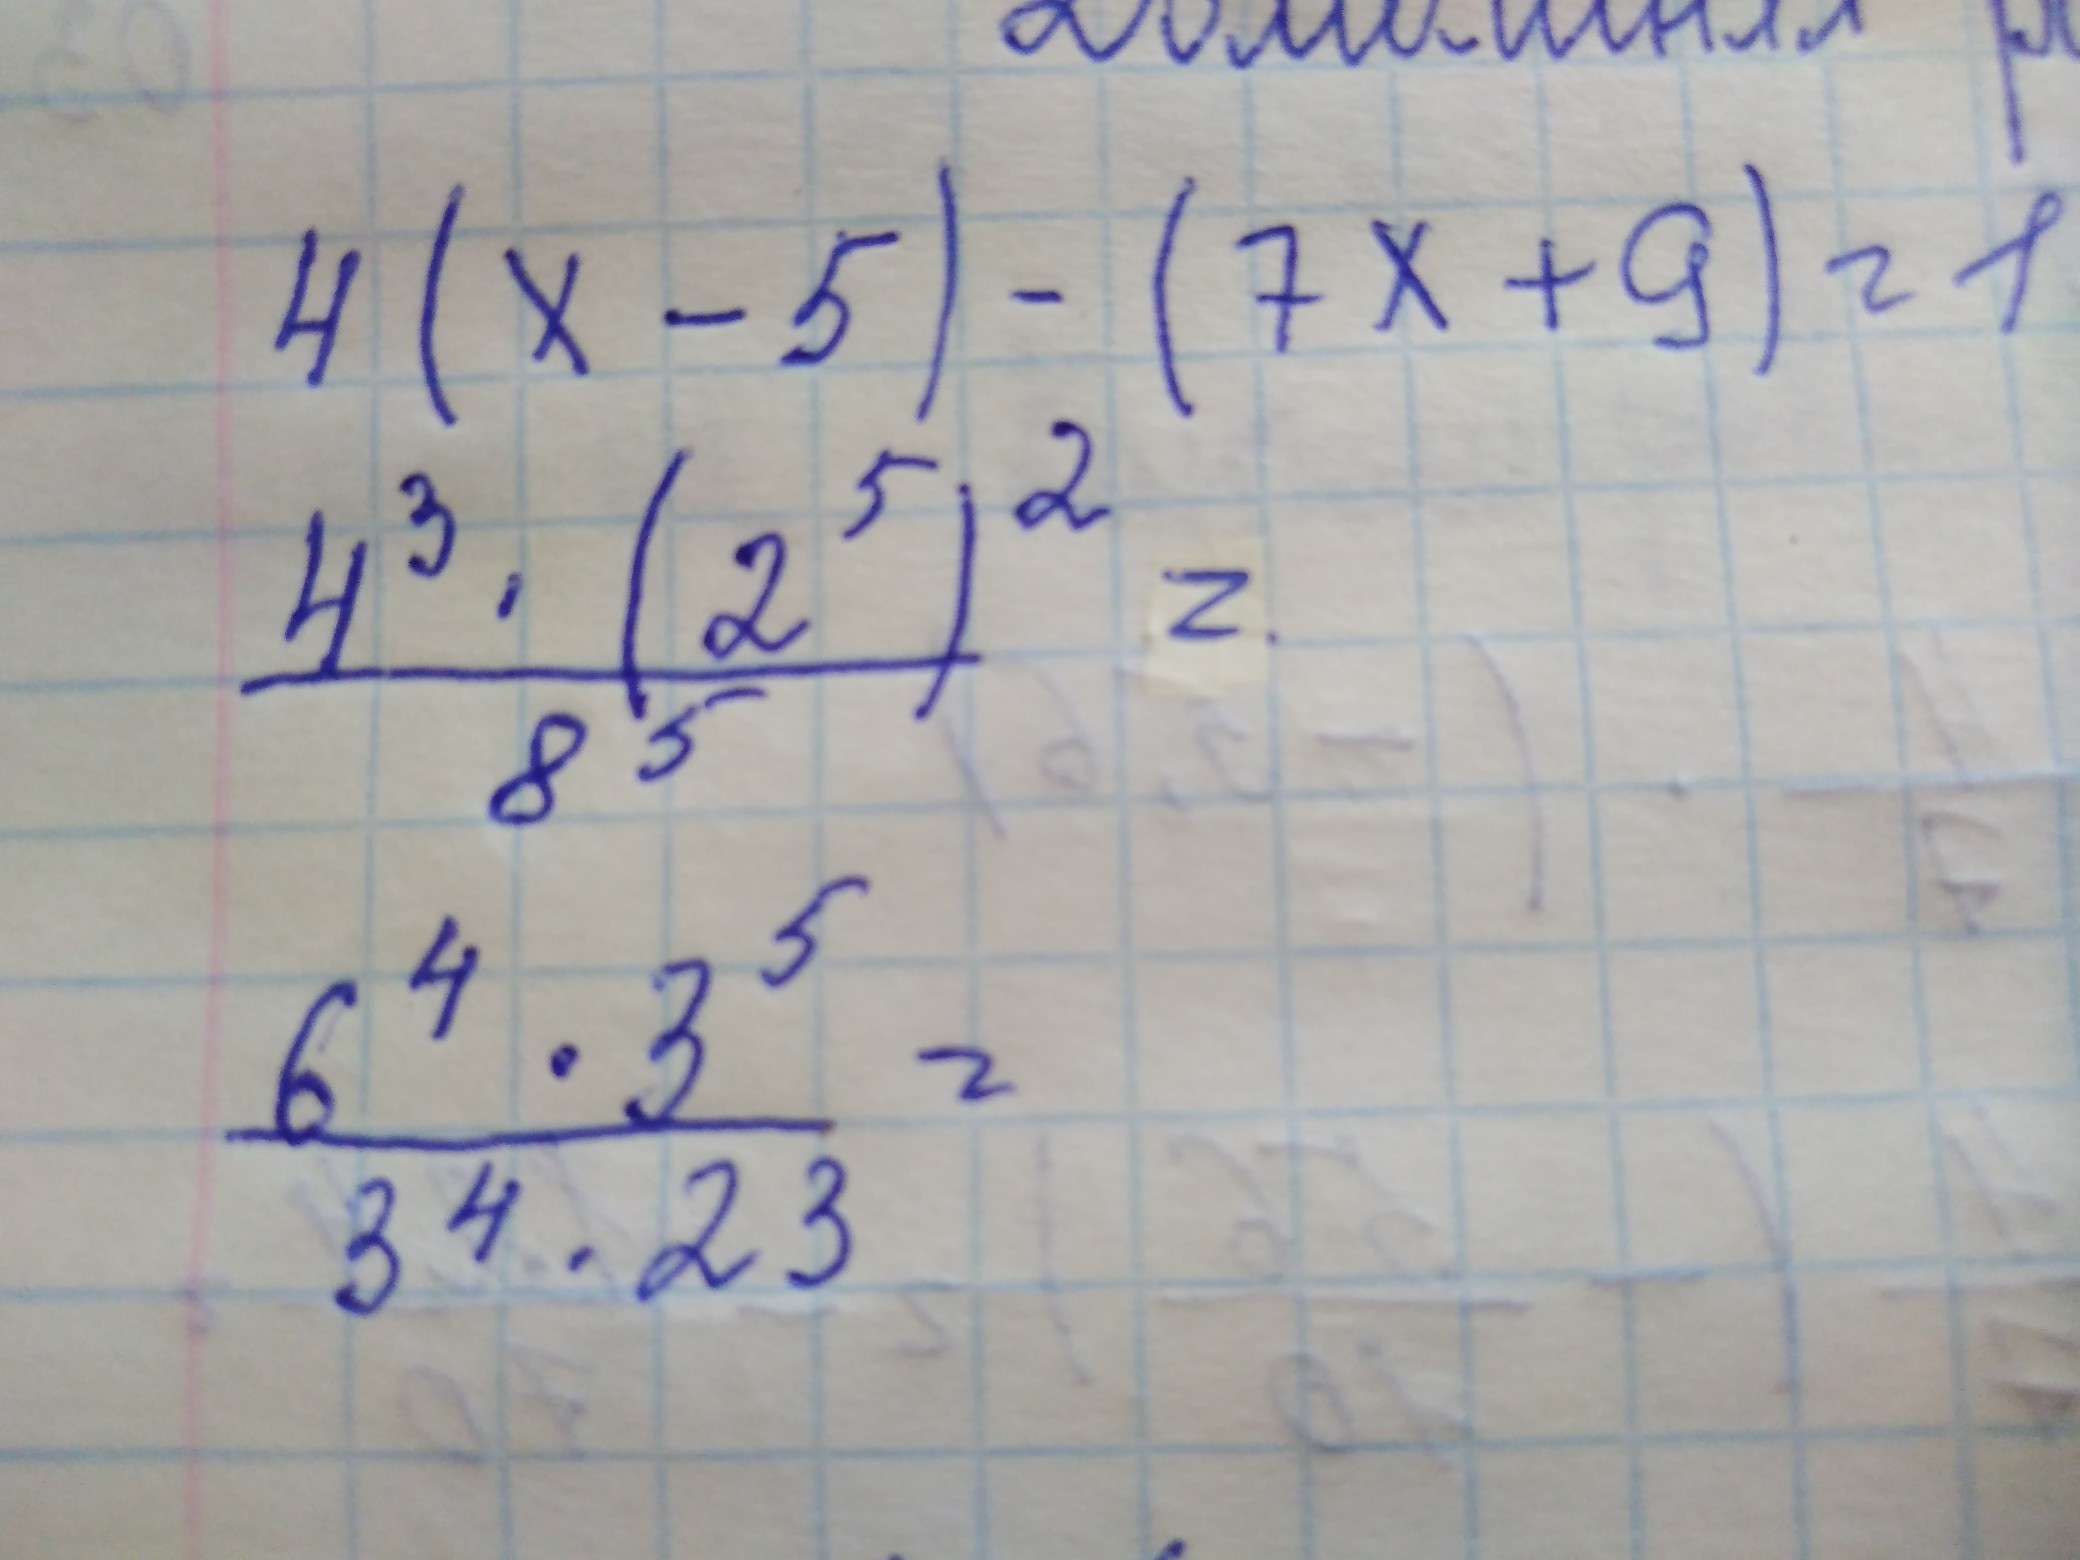 Домашняя
4(x-5)-(7x+9)=1
4³·(2⁵)²/8⁵=
6⁴·3⁵/3⁴·23=